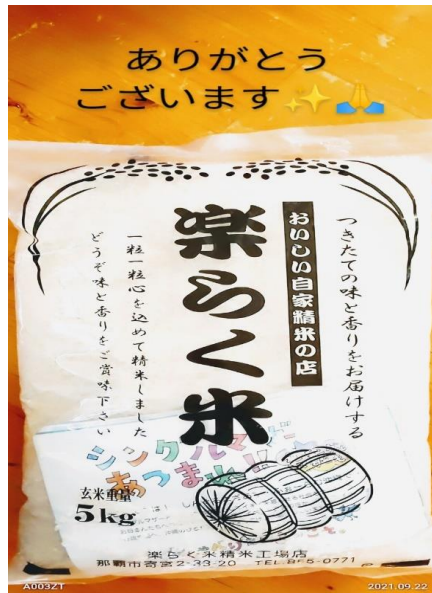 ありがとう
ございます✨🙏
つきたての味と香りをお届けする
おいしい自家精米の店
楽らく米
一粒一粒心を込めて精米しました
どうぞ味と香りをご賞味下さい
シングルマザー
あつまれ!!
玄米重量
5kg
楽らく米精米工場店
那覇市寄宮2-33-20 TEL.855-0771
A003ZT
2021.09.22